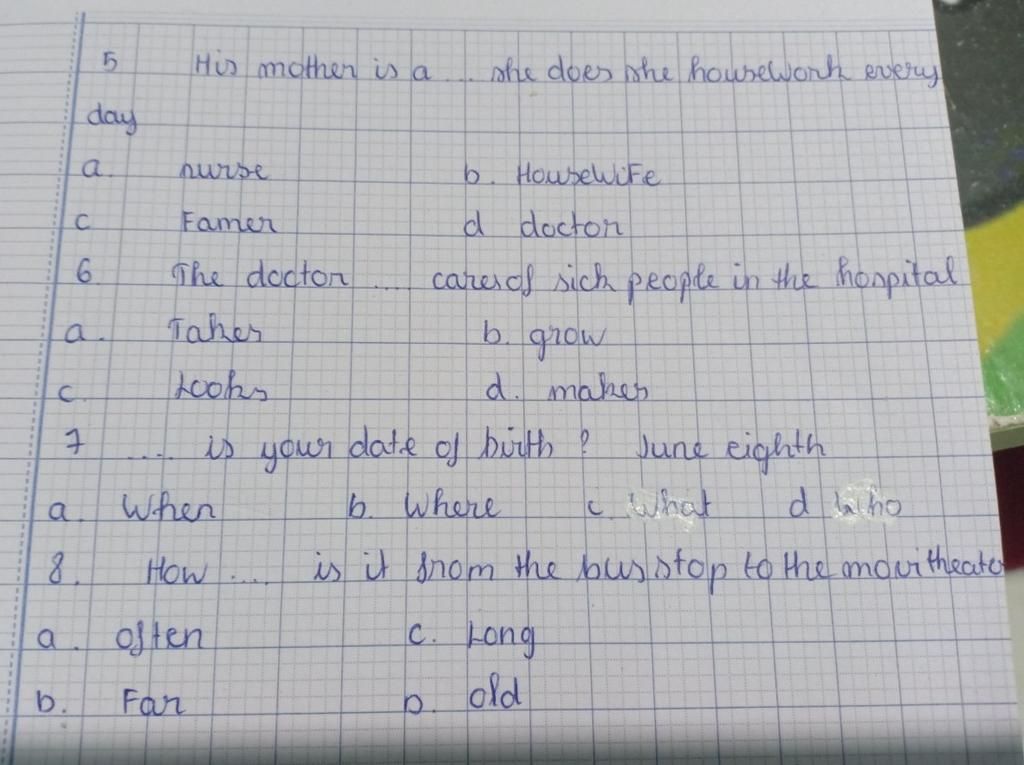 5 His mother is a ... she does she housework every
day
a. nurse b. Housewife
c Famer d doctor
6. The doctor .... cares of sick people in the hospital
a. Takes b. grow
c. Looks d. makes
7 .... is your date of birth ? June eighth
a. When b. Where c. What d Who
8. How .... is it from the bus stop to the movitheater
a. often c. Long
b. Far D. old